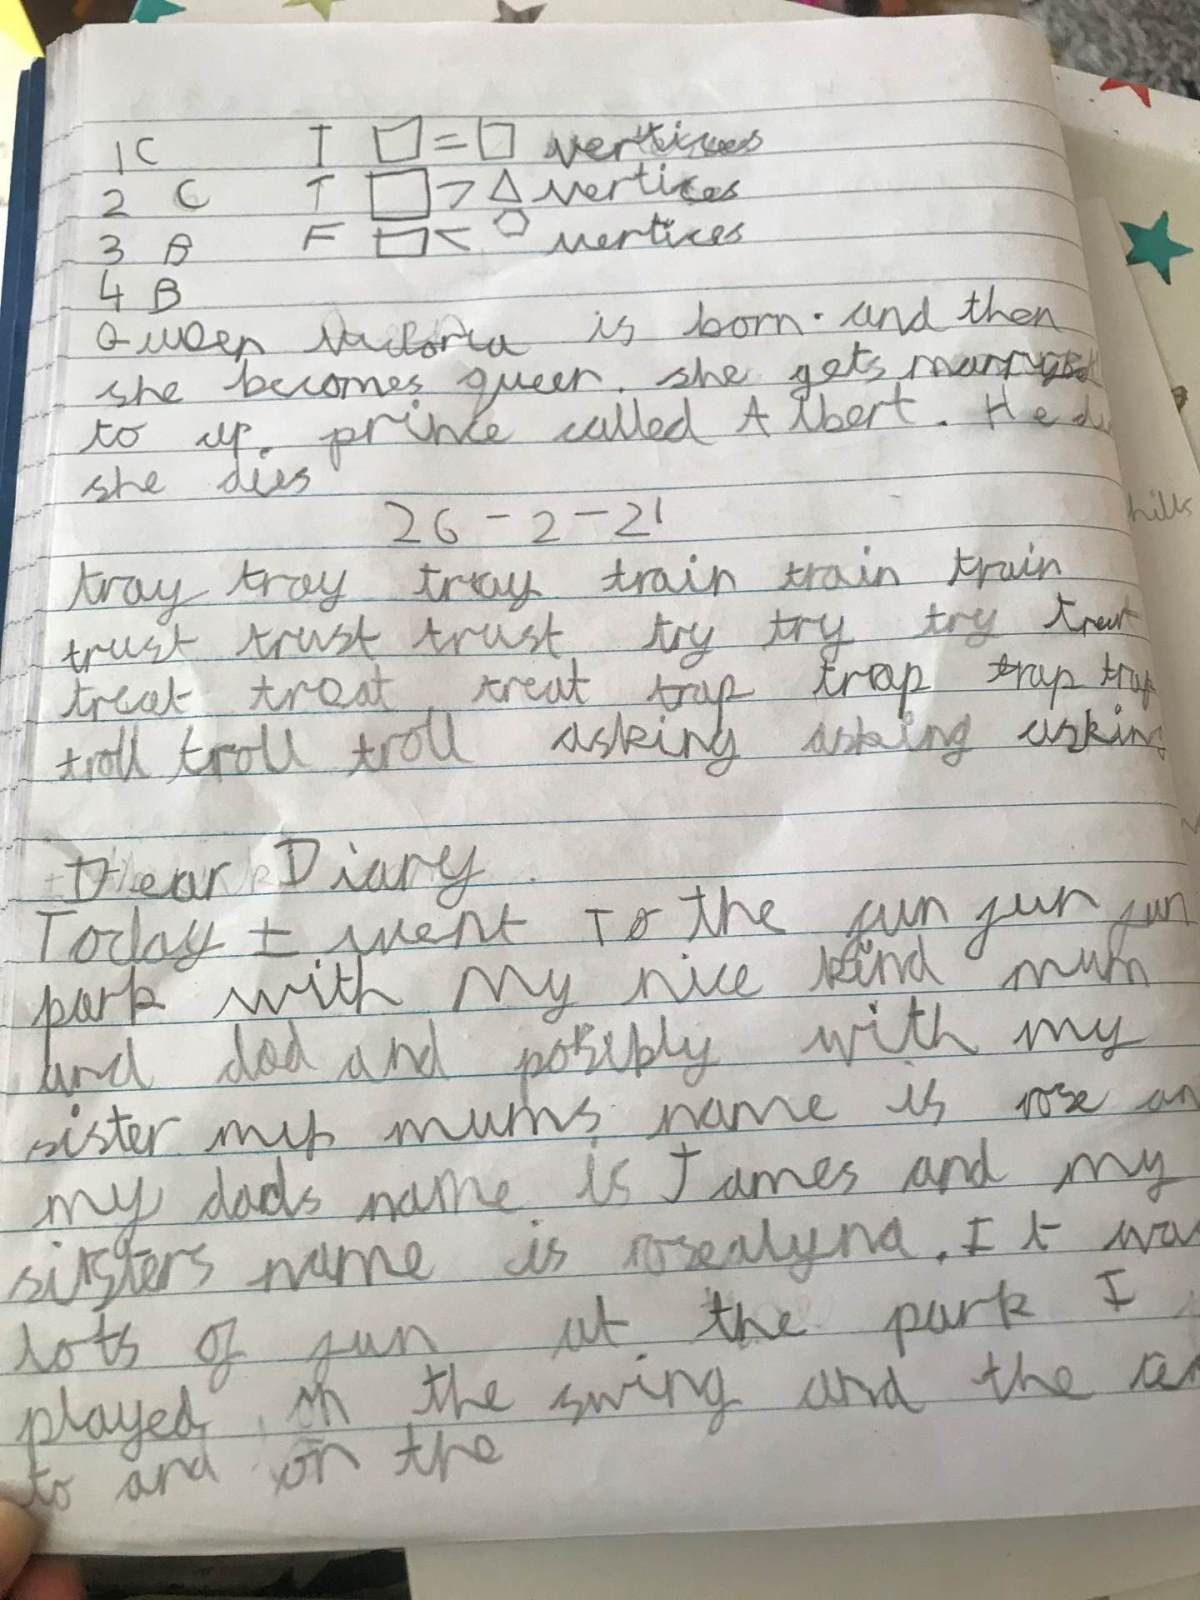 1 C T □ = □ vertices
2 C T □ > △ vertices
3 B F ▭ < ⬠ vertices
4 B
Queen Victoria is born. and then
she becomes queen. she gets
to prince called Albert. He
she dies
26-2-21
hills
tray tray tray train train train
trust trust trust try try try treat
treat treat treat trap trap trap trap
troll troll troll asking asking asking
Dear Diary
Today I went To the fun fun fun
park with My nice kind mum
and dad and posibly with my
sister my mums name is rose an
my dads name is James and my
sisters name is rosealyna. It was
lots of fun at the park I
played on the swing and the
to and on the